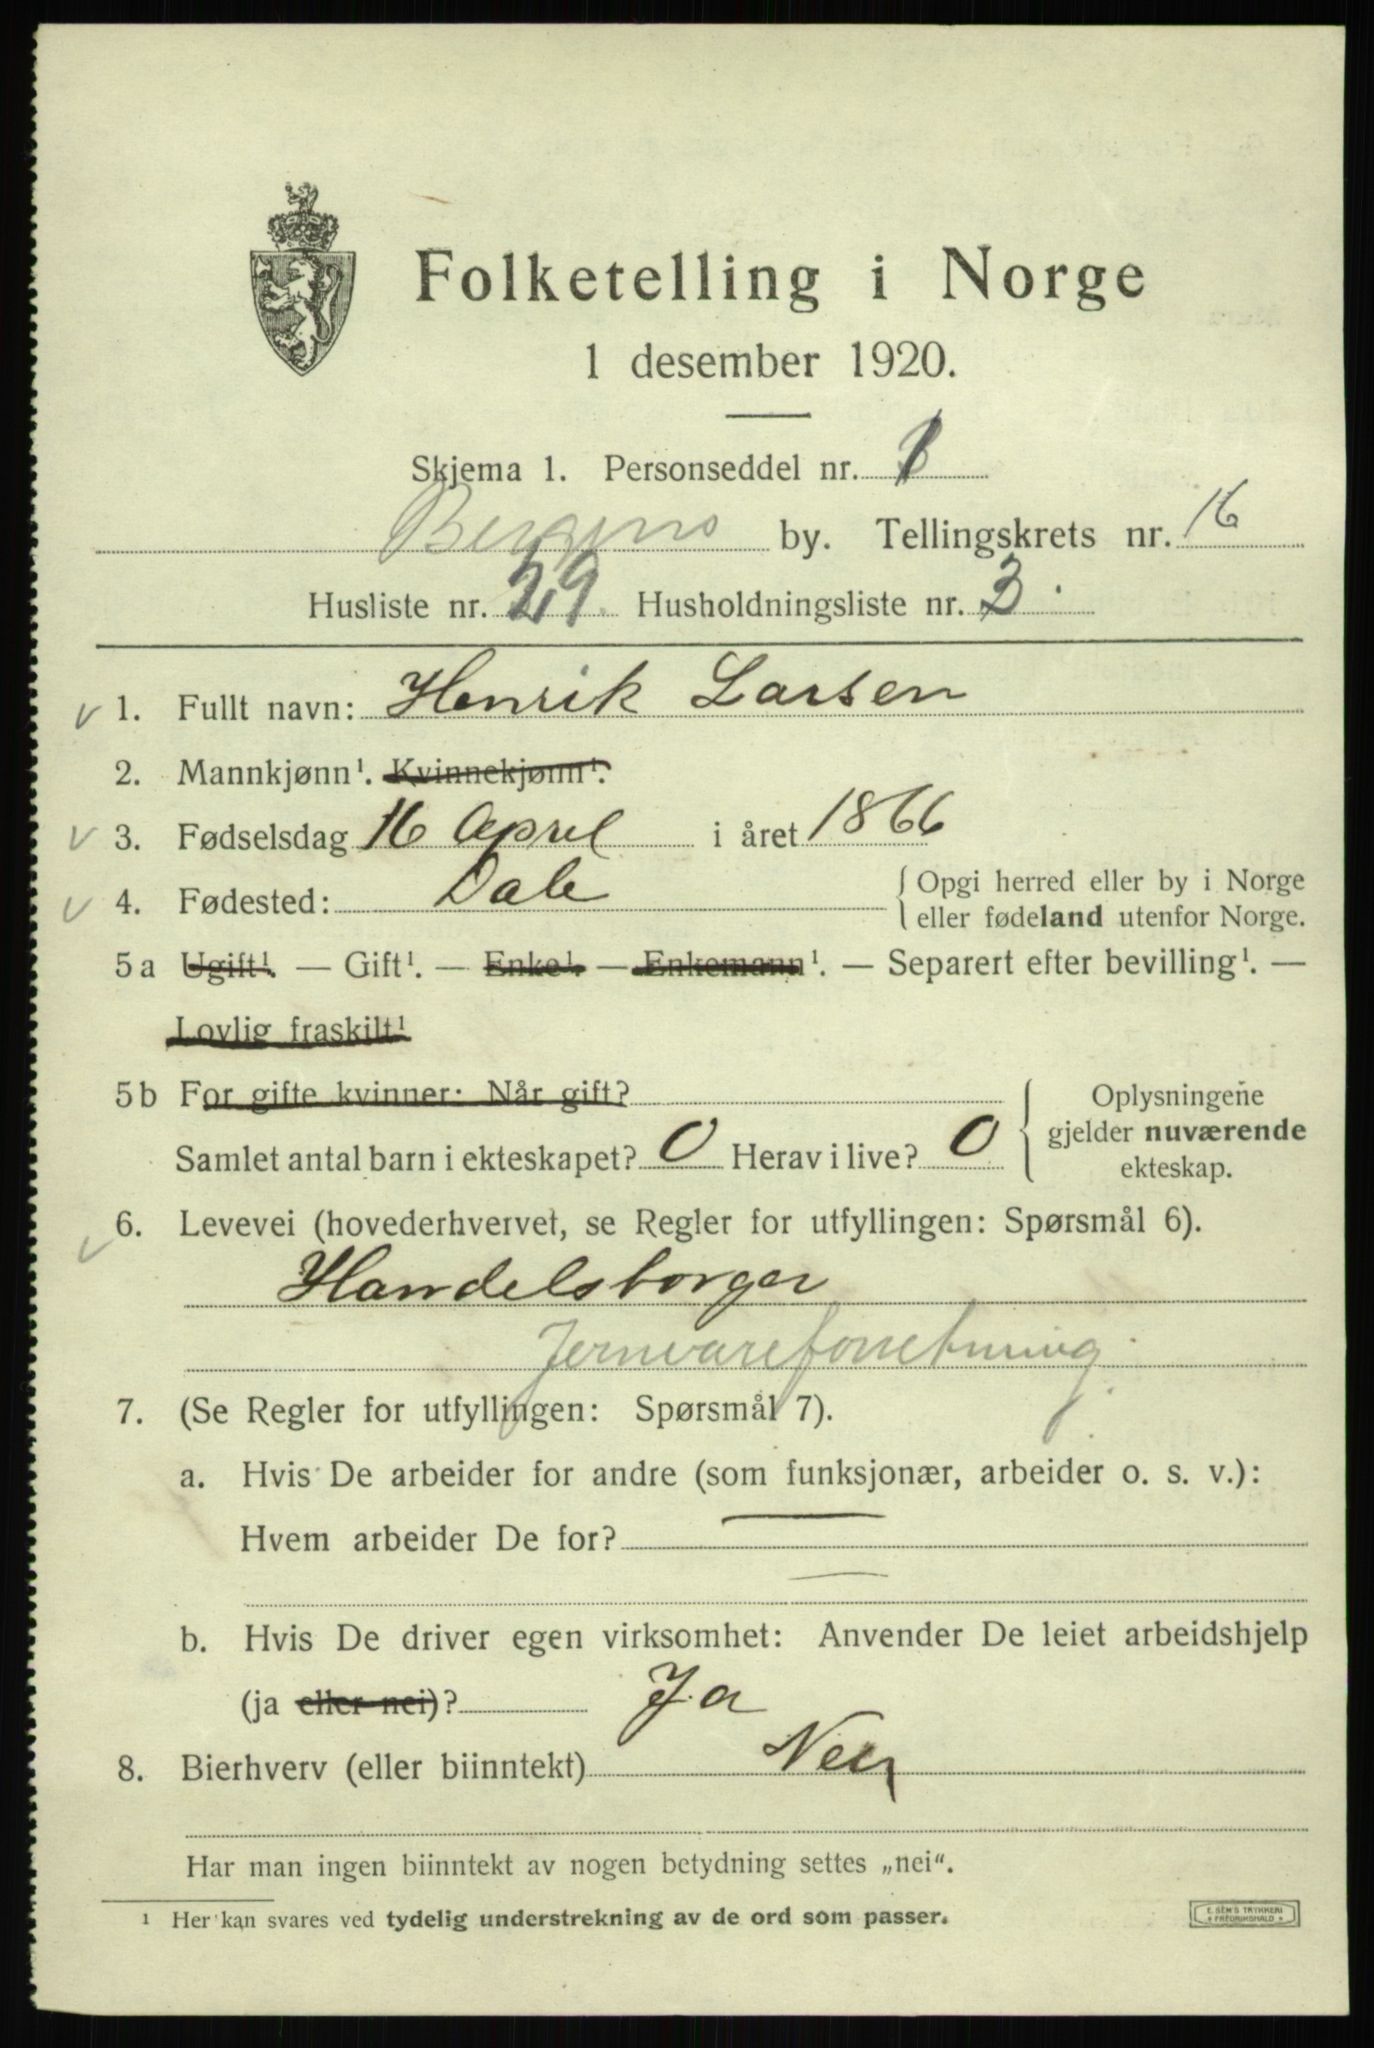 Folketelling i Norge
1 desember 1920.
Skjema 1. Personseddel nr. 1
Bergens by. Tellingskrets nr. 16
Husliste nr. 29. Husholdningsliste nr. 3.
v 1. Fullt navn: Henrik Larsen
2. Mannkjønn¹. Kvinnekjønn¹.
v 3. Fødselsdag 16 April i året 1866
v 4. Fødested: Dale { Opgi herred eller by i Norge
eller fødeland utenfor Norge.
5 a Ugift¹. — Gift¹. — Enke¹. — Enkemann¹. — Separert efter bevilling¹. —
Lovlig fraskilt¹
5 b For gifte kvinner: Når gift?
Samlet antal barn i ekteskapet? 0 Herav i live? 0
{ Oplysningene
gjelder nuværende
ekteskap.
v 6. Levevei (hovederhvervet, se Regler for utfyllingen: Spørsmål 6).
Handelsborger
Jernvareforretning
7. (Se Regler for utfyllingen: Spørsmål 7).
a. Hvis De arbeider for andre (som funksjonær, arbeider o. s. v.):
Hvem arbeider De for? —
b. Hvis De driver egen virksomhet: Anvender De leiet arbeidshjelp
(ja eller nei)? Ja
8. Bierhverv (eller biinntekt) Nei
Har man ingen biinntekt av nogen betydning settes „nei“.
¹ Her kan svares ved tydelig understrekning av de ord som passer.
E. SEM'S TRYKKERI
* FREDRIKSHALD *